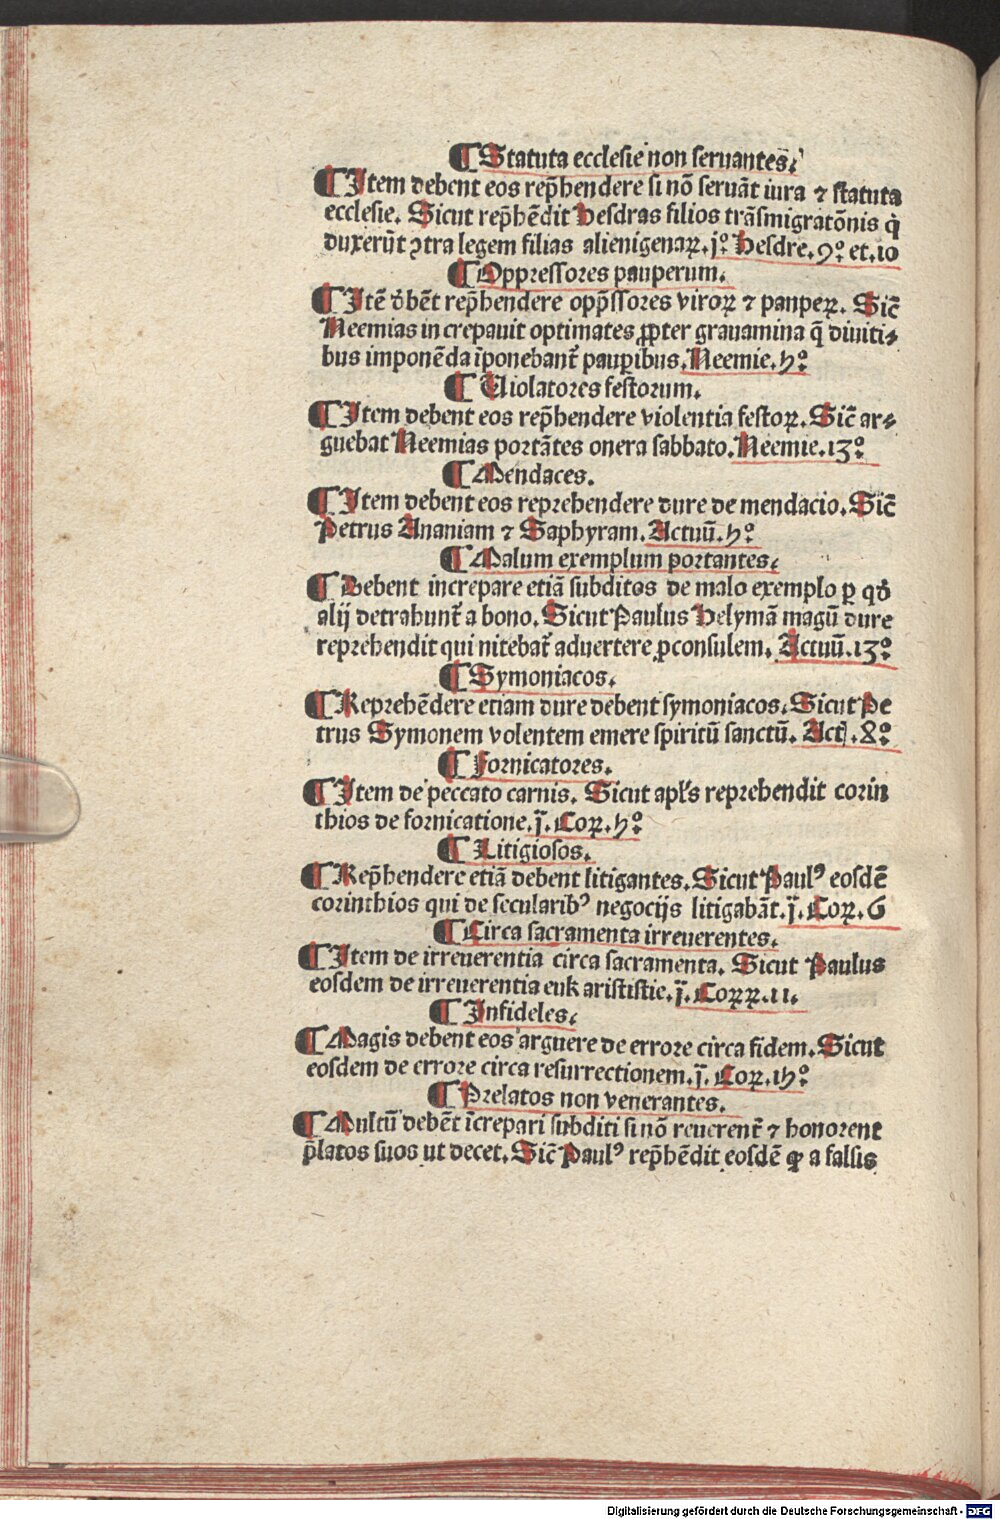 ¶ Statuta ecclesie non seruantes.
¶ Item debent eos rep̃hendere si nõ seruãt iura ⁊ statuta
ecclesie. Sicut rep̃hẽdit Hesdras filios trãsmigratõnis q̇
duxerũt ꝯtra legem filias alienigenaꝝ. j.º Hesdre. 9.º et. 10
¶ Oppressores pauperum.
¶ Itẽ d̾bẽt rep̃hendere opp̃ssores viroꝝ ⁊ paupeꝝ. Sic̃
Neemias increpauit optimates ꝓpter grauamina q̃ diuiti⸗
bus imponẽda ĩponebant̃ paupꝑibus. Neemie. 5.º
¶ Uiolatores festorum.
¶ Item debent eos rep̃hendere violentia festoꝝ. Sic̃ ar⸗
guebat Neemias portãtes onera sabbato. Neemie. 13.º
¶ Mendaces.
¶ Item debent eos reprehendere dure de mendacio. Sic̃
Petrus Ananiam ⁊ Saphyram. Actuũ. 5.º
¶ Malum exemplum portantes.
¶ Debent increpare etiã subditos de malo exemplo ꝑ qd̾
alij detrahunt̃ a bono. Sicut Paulus Helymã magũ dure
reprehendit qui nitebat̃ aduertere ꝓconsulem. Actuũ. 13.º
¶ Symoniacos.
¶ Reprehẽdere etiam dure debent symoniacos. Sicut Pe
trus Symonem volentem emere spiritũ sanctũ. Act. 8.º
¶ Fornicatores.
¶ Item de peccato carnis. Sicut apl̃s reprehendit corin
thios de fornicatione. j̃. Coꝝ. 5.º
¶ Litigiosos.
¶ Rep̃hendere etiã debent litigantes. Sicut Paulꝰ eosdẽ
corinthios qui de secularibꝰ negocijs litigabãt. j̃. Coꝝ. 6
¶ Circa sacramenta irreuerentes.
¶ Item de irreuerentia circa sacramenta. Sicut Paulus
eosdem de irreuerentia eukarististie. j̃. Corꝝ. 11.
¶ Infideles.
¶ Magis debent eos arguere de errore circa fidem. Sicut
eosdem de errore circa resurrectionem. j̃. Coꝝ. 15.º
¶ Prelatos non venerantes.
¶ Multũ debẽt ĩcrepari subditi si nõ reuerent̃ ⁊ honorent
p̃latos suos ut decet. Sic̃ Paulꝰ rep̃hẽdit eosdẽ ꝙ a falsis
Digitalisierung gefördert durch die Deutsche Forschungsgemeinschaft - DFG